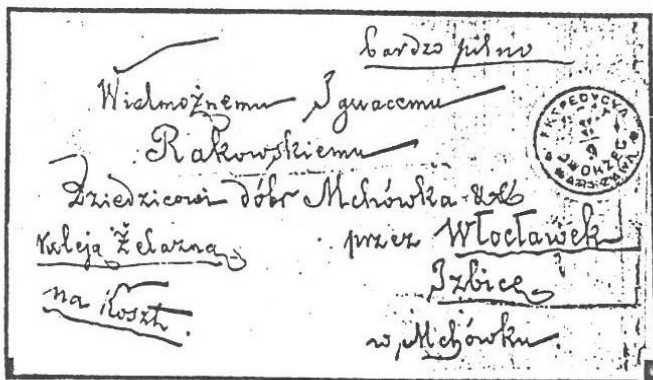 bardzo pilno
Wielmożnemu Ignacemu
Rakowskiemu
Dziedzicowi dóbr Mchówka
Koleją Żelazną przez Włocławek
Izbicę
na Koszt.
w Mchówku.
EKSPEDYCYA
9
DWORZEC
WARSZAWA